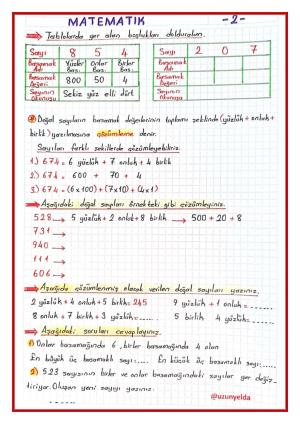 MATEMATİK -2-
Tablolarda yer alan boşlukları dolduralım.
Sayı 8 5 4
Basamak Adı Yüzler Bas. Onlar Bas. Birler Bas.
Basamak Değeri 800 50 4
Sayının Okunuşu Sekiz yüz elli dört
Sayı 2 0 7
Basamak Adı
Basamak Değeri
Sayının Okunuşu
Doğal sayıların basamak değerlerinin toplamı şeklinde (yüzlük + onluk +
birlik) yazılmasına çözümleme denir.
Sayıları farklı şekillerde çözümleyebiliriz.
1.) 674 = 6 yüzlük + 7 onluk + 4 birlik
2.) 674 = 600 + 70 + 4
3.) 674 = (6x100) + (7x10) + (4x1)
Aşağıdaki doğal sayıları örnekteki gibi çözümleyiniz.
528 → 5 yüzlük + 2 onluk + 8 birlik → 500 + 20 + 8
731 →
940 →
111 →
606 →
Aşağıda çözümlenmiş olarak verilen doğal sayıları yazınız.
2 yüzlük + 4 onluk + 5 birlik = 245 9 yüzlük + 1 onluk =
8 onluk + 7 birlik + 3 yüzlük = 5 birlik 4 yüzlük =
Aşağıdaki soruları cevaplayınız.
1) Onlar basamağında 6, birler basamağında 4 olan
En büyük üç basamaklı sayı: En küçük üç basamaklı sayı:
2) 523 sayısının birler ve onlar basamağındaki sayılar yer değiş-
tiriyor. Oluşan yeni sayıyı yazınız.
@uzunyelda